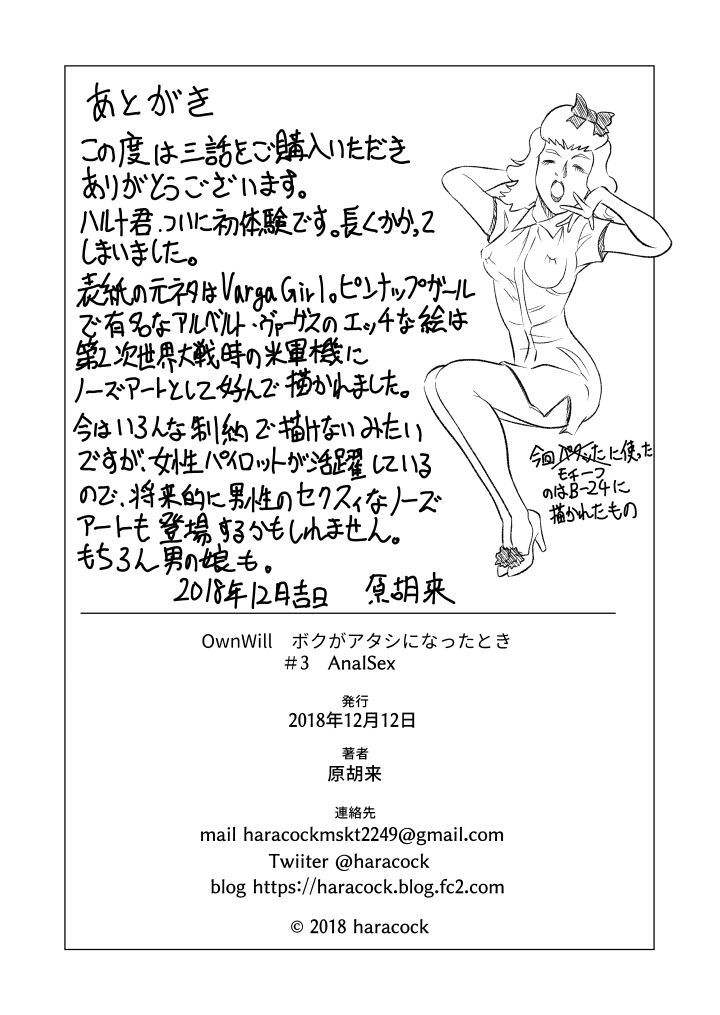 あとがき
この度は三話をご購入いただき
ありがとうございます。
ハルト君、ついに初体験です。長くかかって
しまいました。
表紙の元ネタはVargaGirl。ピンナップガール
で有名なアルベルト・ヴァーゲスのエッチな絵は
第2次世界大戦時の米軍機に
ノーズアートとして好んで描かれました。
今はいろんな制約で描けないみたい
ですが、女性パイロットが活躍している
ので、将来的に男性のセクスィなノーズ
アートも登場するかもしれません。
もちろん男の娘も。
2018年12月吉日 原胡来
今回 に使った
モチーフ
のはB-24に
描かれたもの
OwnWill ボクがアタシになったとき
#3 AnalSex
発行
2018年12月12日
著者
原胡来
連絡先
mail haracockmskt2249@gmail.com
Twiiter @haracock
blog https://haracock.blog.fc2.com
© 2018 haracock